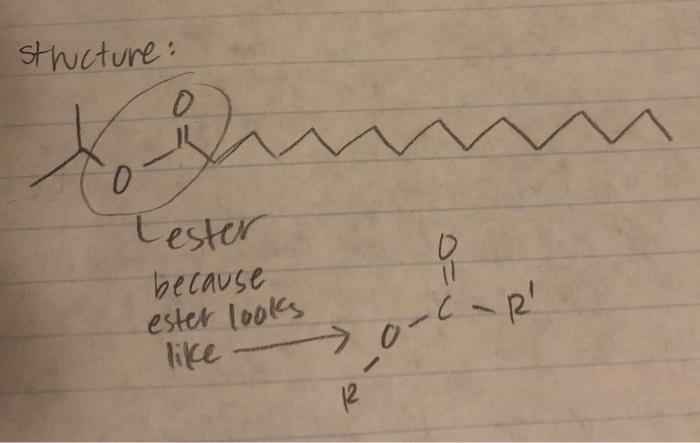 structure:
O
O
ester
because
ester looks
like
O
C
R'
O
R